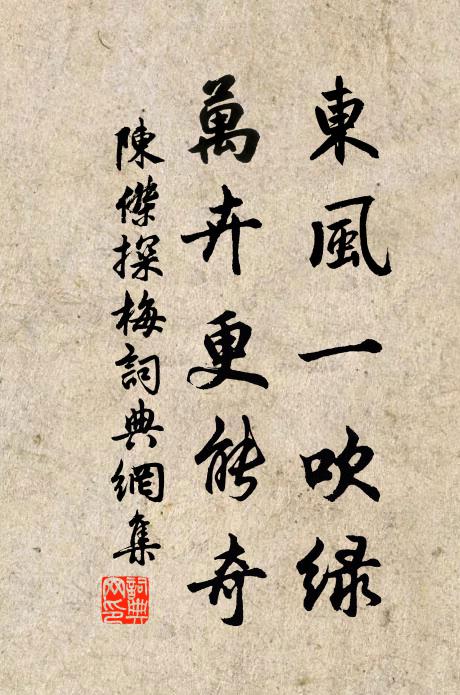 東風一吹綠
萬卉更能奇
陳傑探梅詞典網集
詞典網印